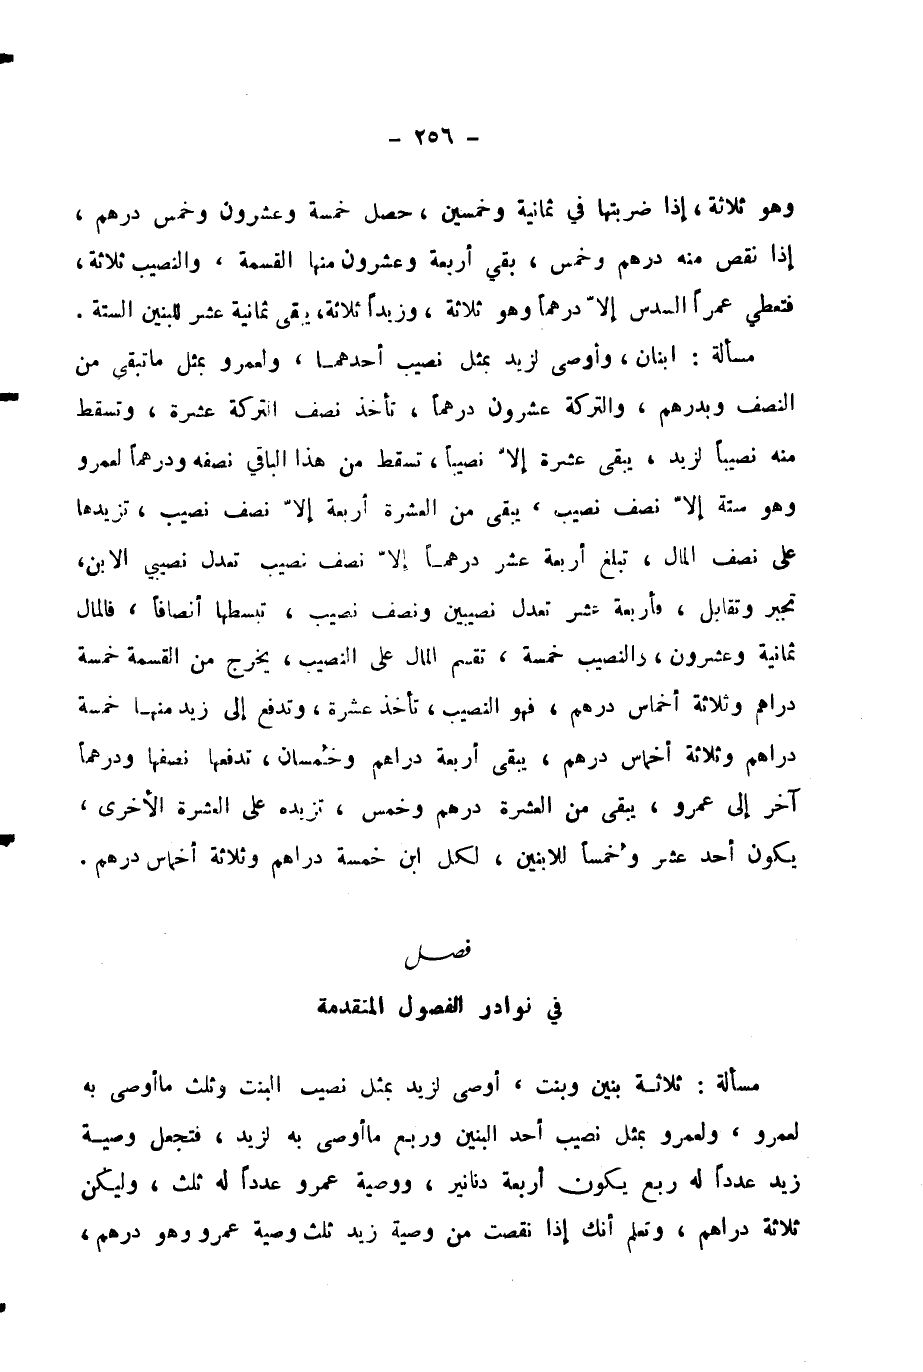 - ٢٥٦ -
وهو ثلاثة ، إذا ضربتها في ثمانية وخمسين ، حصل خمسة وعشرون وخمس درهم ،
إذا نقص منه درهم وخمس ، بقي أربعة وعشرون منها القسمة ، والنصيب ثلاثة ،
فتعطي عمراً السدس إلاّ درهماً وهو ثلاثة ، وزيداً ثلاثة ، يبقى ثمانية عشر للبنين الستة .
مسألة : ابنان ، وأوصى لزيد بمثل نصيب أحدهمـا ، ولعمرو بمثل ماتبقى من
النصف وبدرهم ، والتركة عشرون درهماً ، تأخذ نصف التركة عشرة ، وتسقط
منه نصيباً لزيد ، يبقى عشرة إلاّ نصيباً ، تسقط من هذا الباقي نصفه ودرهماً لعمرو
وهو ستة إلاّ نصف نصيب ، يبقى من العشرة أربعة إلاّ نصف نصيب ، تزيدها
على نصف المال ، تبلغ أربعة عشر درهمـاً إلاّ نصف نصيب تعدل نصيبي الابن ،
تجبر وتقابل ، فأربعة عشر تعدل نصيبين ونصف نصيب ، تبسطها أنصافاً ، فالمال
ثمانية وعشرون ، والنصيب خمسة ، تقسم المال على النصيب ، يخرج من القسمة خمسة
دراهم وثلاثة أخماس درهم ، فهو النصيب ، تأخذ عشرة ، وتدفع إلى زيد منهـا خمسة
دراهم وثلاثة أخماس درهم ، يبقى أربعة دراهم وخُمسان ، تدفعها نصفها ودرهماً
آخر إلى عمرو ، يبقى من العشرة درهم وخمس ، تزيده على العشرة الأخرى ،
يكون أحد عشر وخُمساً للابنين ، لكل ابن خمسة دراهم وثلاثة أخماس درهم .
فصـــل
في نوادر الفصول المتقدمة
مسألة : ثلاثـة بنين وبنت ، أوصى لزيد بمثل نصيب البنت وثلث ماأوصى به
لعمرو ، ولعمرو بمثل نصيب أحد البنين وربع ماأوصى به لزيد ، فتجعل وصيـة
زيد عدداً له ربع يكون أربعة دنانير ، ووصية عمرو عدداً له ثلث ، وليكن
ثلاثة دراهم ، وتعلم أنك إذا نقصت من وصية زيد ثلث وصية عمرو وهو درهم ،